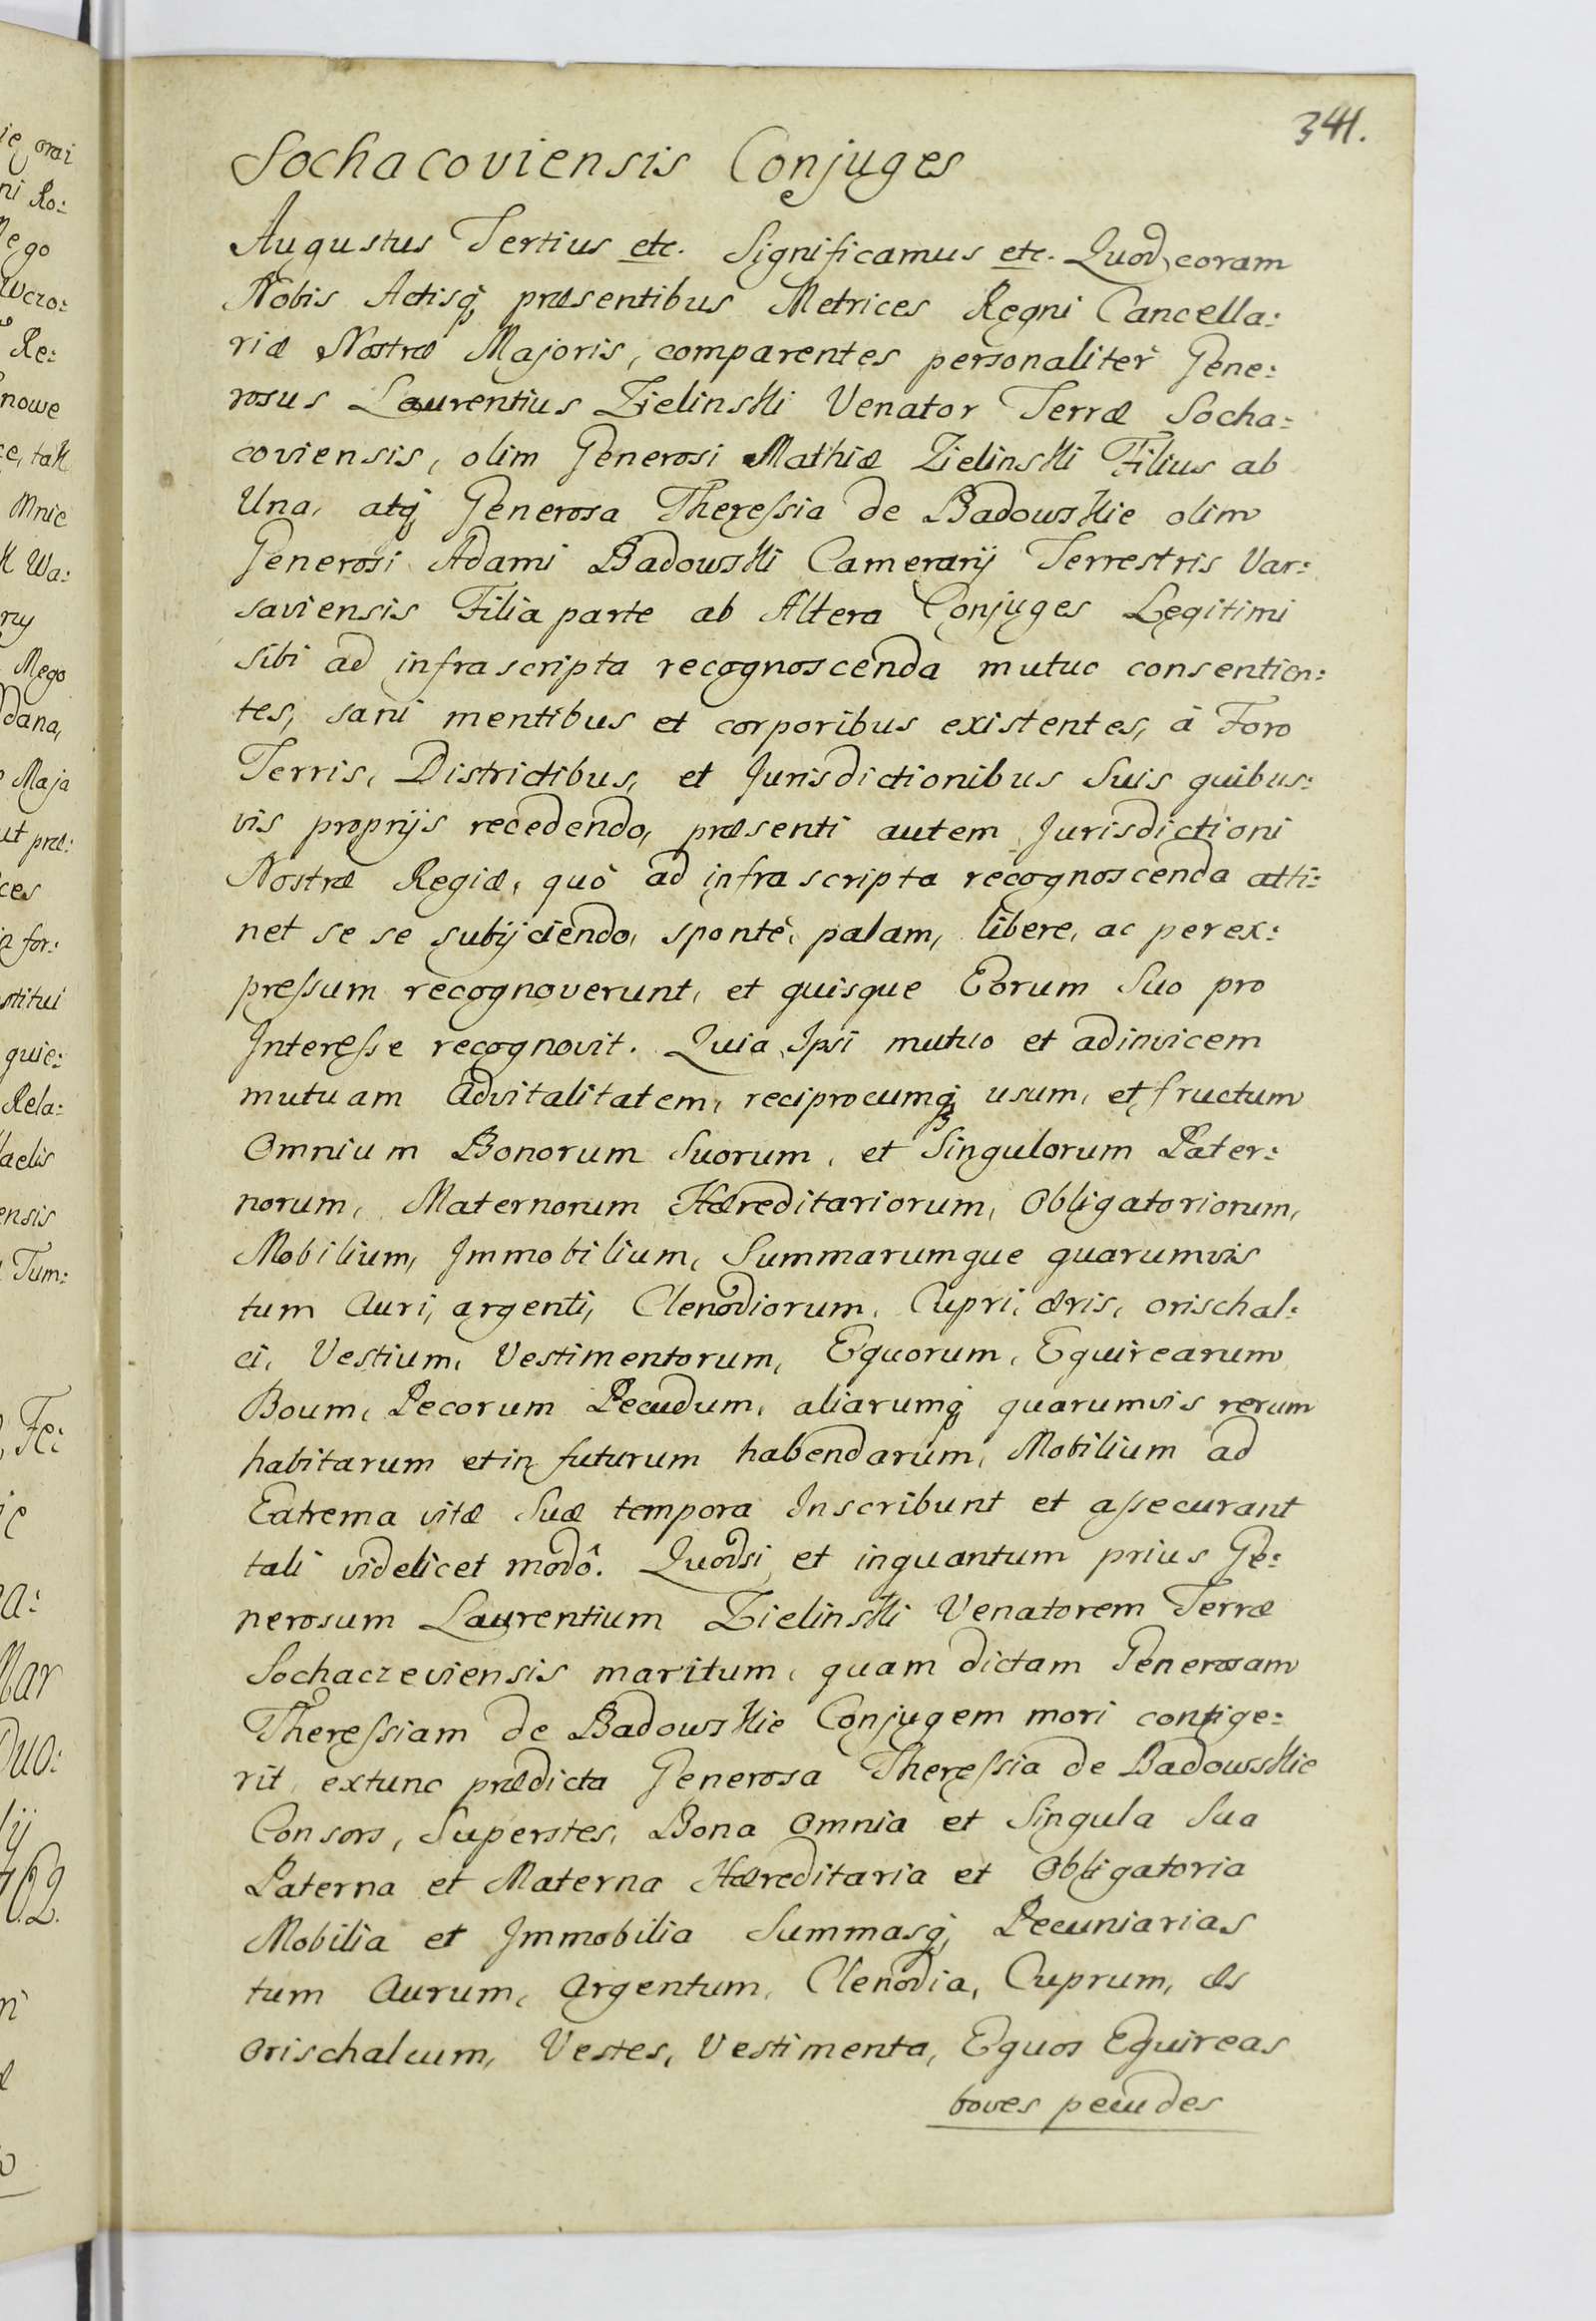 341.
Sochacoviensis Conjuges
Augustus Tertius etc. Significamus etc. Quod coram
Nobis Actisq, præsentibus Metrices Regni Cancella:
riæ Nostræ Majoris, comparentes personaliter Gene:
rosus Laurentius Zielinski Venator Terræ Socha:
coviensis, olim Generosi Mathiæ Zielinski Filius ab
Una, atq Generosa Theressia de Badowskie olim
Generosi Adami Badowski Camerarij Terrestris Var:
saviensis Filia parte ab Altera Conjuges Legitimi
sibi ad infrascripta recognoscenda mutuo consentien:
tes, sani mentibus et corporibus existentes, à Foro
Terris, Districtibus, et Jurisdictionibus Suis quibus:
vis proprijs recedendo, præsenti autem Jurisdictioni
Nostræ Regiæ, quò ad infrascripta recognoscenda atti:
net se se subijciendo, spontè, palam, libere, ac per ex:
pressum recognoverunt, et quisque Eorum Suo pro
Interesse recognovit. Quia Ipsi mutuo et adinvicem
mutuam advitalitatem, reciprocumq usum, et fructum
Omnium Bonorum Suorum, et Singulorum Pater:
norum, Maternorum Hæreditariorum, Obligatoriorum,
Mobilium, Immobilium, Summarumque quarumvis
tum Auri, argenti, Clenodiorum, Cupri, æris, orischal:
ci, Vestium, Vestimentorum, Equorum, Equirearum
Boum, Pecorum Pecudum, aliarumq quarumvis rerum
habitarum et in futurum habendarum, Mobilium ad
Extrema vitæ Suæ tempora Inscribunt et assecurant
tali videlicet modô. Quodsi et inquantum prius Ge:
nerosum Laurentium Zielinski Venatorem Terræ
Sochaczeviensis maritum, quam dictam Generosam
Theressiam de Badowskie Conjugem mori contige:
rit, extunc prædicta Generosa Theressia de Badowsskie
Consors, Superstes, Bona Omnia et Singula Sua
Paterna et Materna Hæreditaria et Obligatoria
Mobilia et Immobilia Summasq, Pecuniarias
tum Aurum, Argentum, Clenodia, Cuprum, æs
Orischalcum, Vestes, Vestimenta, Equos Equireas
boves pecudes